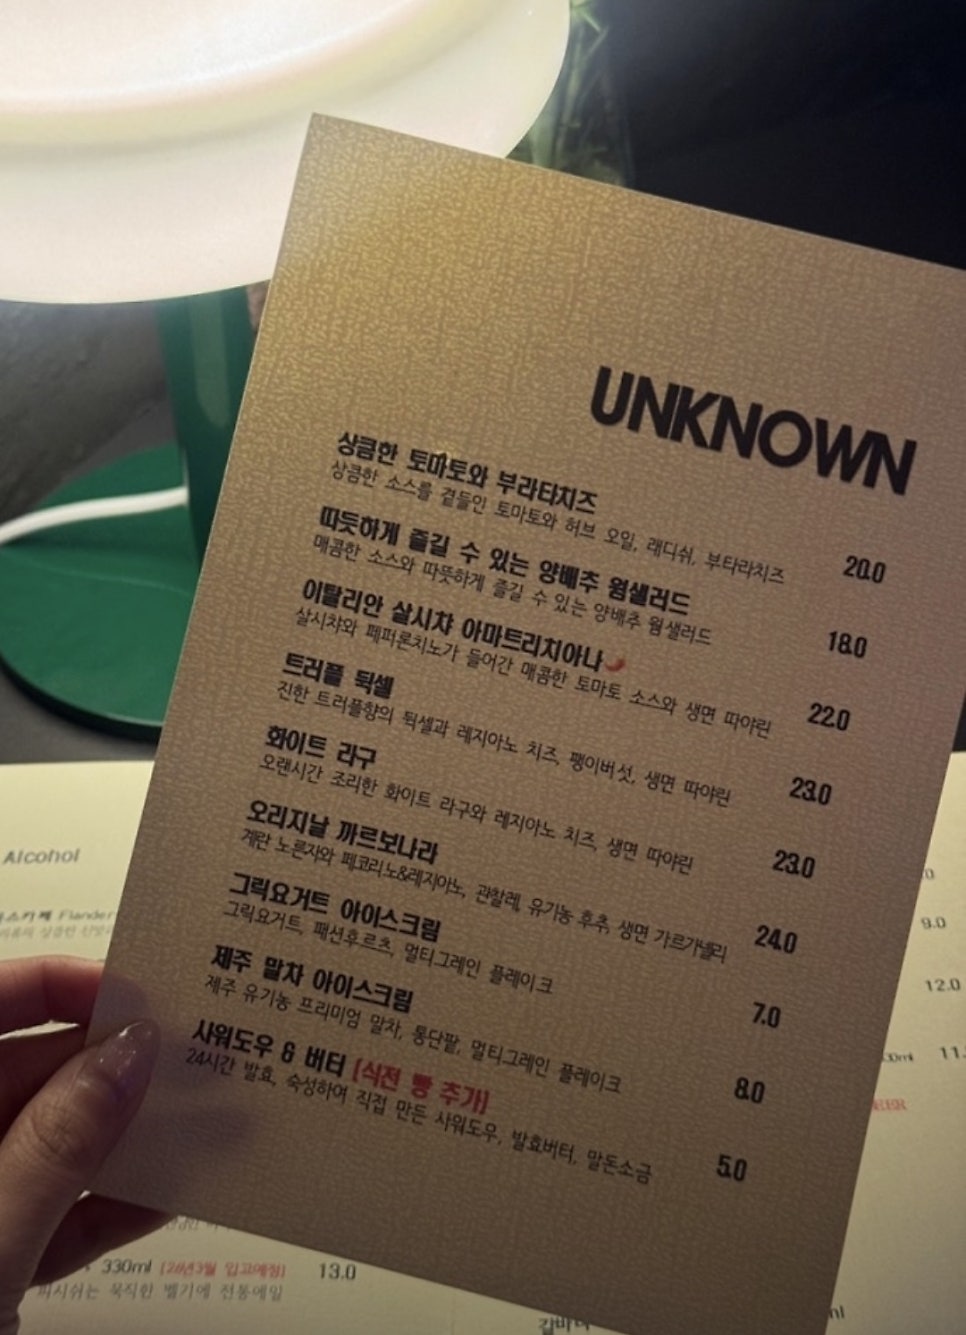 UNKNOWN
상큼한 토마토와 부라타치즈
상큼한 소스를 곁들인 토마토와 허브 오일, 래디쉬, 부타라치즈
20.0
따듯하게 즐길 수 있는 양배추 웜샐러드
매콤한 소스와 따뜻하게 즐길 수 있는 양배추 웜샐러드
18.0
이탈리안 살시챠 아마트리치아나
살시챠와 페퍼론치노가 들어간 매콤한 토마토 소스와 생면 따야린
22.0
트러플 뒥셀
진한 트러플향의 뒥셀과 레지아노 치즈, 팽이버섯, 생면 따야린
23.0
화이트 라구
오랜시간 조리한 화이트 라구와 레지아노 치즈, 생면 따야린
23.0
오리지날 까르보나라
계란 노른자와 페코리노&레지아노, 관찰레, 유기농 후추, 생면 가르가넬리
24.0
그릭요거트 아이스크림
그릭요거트, 패션후르츠, 멀티그레인 플레이크
7.0
제주 말차 아이스크림
제주 유기농 프리미엄 말차, 통단팥, 멀티그레인 플레이크
8.0
사워도우 & 버터 (식전 빵 추가)
24시간 발효, 숙성하여 직접 만든 사워도우, 발효버터, 말돈소금
5.0
Alcohol
9.0
12.0
330ml
13.0
묵직한 벨기에 전통에일